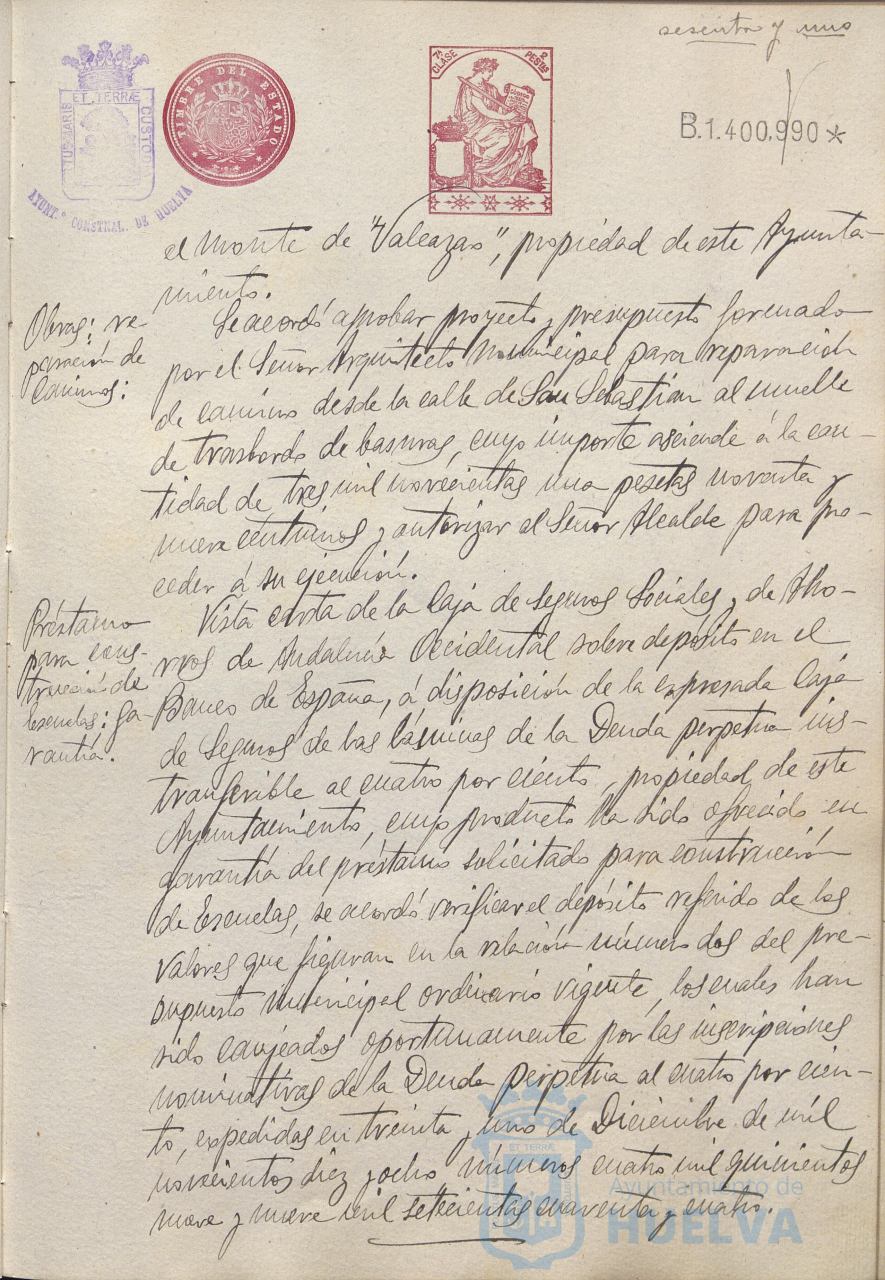 sesenta y uno
ET TERRÆ
TUS MARIS
CUSTODI
AYUNT.º CONSTNAL. DE HUELVA
TIMBRE DEL ESTADO
7ª CLASE
2 PESTAS
B.1.400,990*
el monte de "Valcazao", propiedad de este Ayunta-
miento.
Obras: re-
paración de
Caminos:
Se acordó aprobar proyecto y presupuesto formado
por el Señor Arquitecto Municipal para reparación
de camino desde la calle de San Sebastián al muelle
de trasbordo de basuras, cuyo importe asciende á la can-
tidad de tres mil novecientas una pesetas noventa y
nueve céntimos y autorizar al Señor Alcalde para pro-
ceder á su ejecución.
Préstamo
para cons-
trucción de
Escuelas: Ga-
rantía.
Vista carta de la Caja de Seguros Sociales y de Aho-
rros de Andalucía Occidental sobre depósito en el
Banco de España, á disposición de la expresada Caja
de Seguros de las láminas de la Deuda perpetua ins-
transferible al cuatro por ciento, propiedad de este
Ayuntamiento, cuyo producto ha sido ofrecido en
garantía del préstamo solicitado para construcción
de Escuelas, se acordó verificar el depósito referido de los
valores que figuran en la relación número dos del pre-
supuesto municipal ordinario vigente, los cuales han
sido canjeados oportunamente por las inscripciones
nominativas de la Deuda perpetua al cuatro por cien-
to, expedidas en treinta y uno de Diciembre de mil
novecientos diez y ocho números cuatro mil quinientos
nueve y nueve mil setecientas cuarenta y cuatro.
ET TERRÆ
Ayuntamiento de
HUELVA